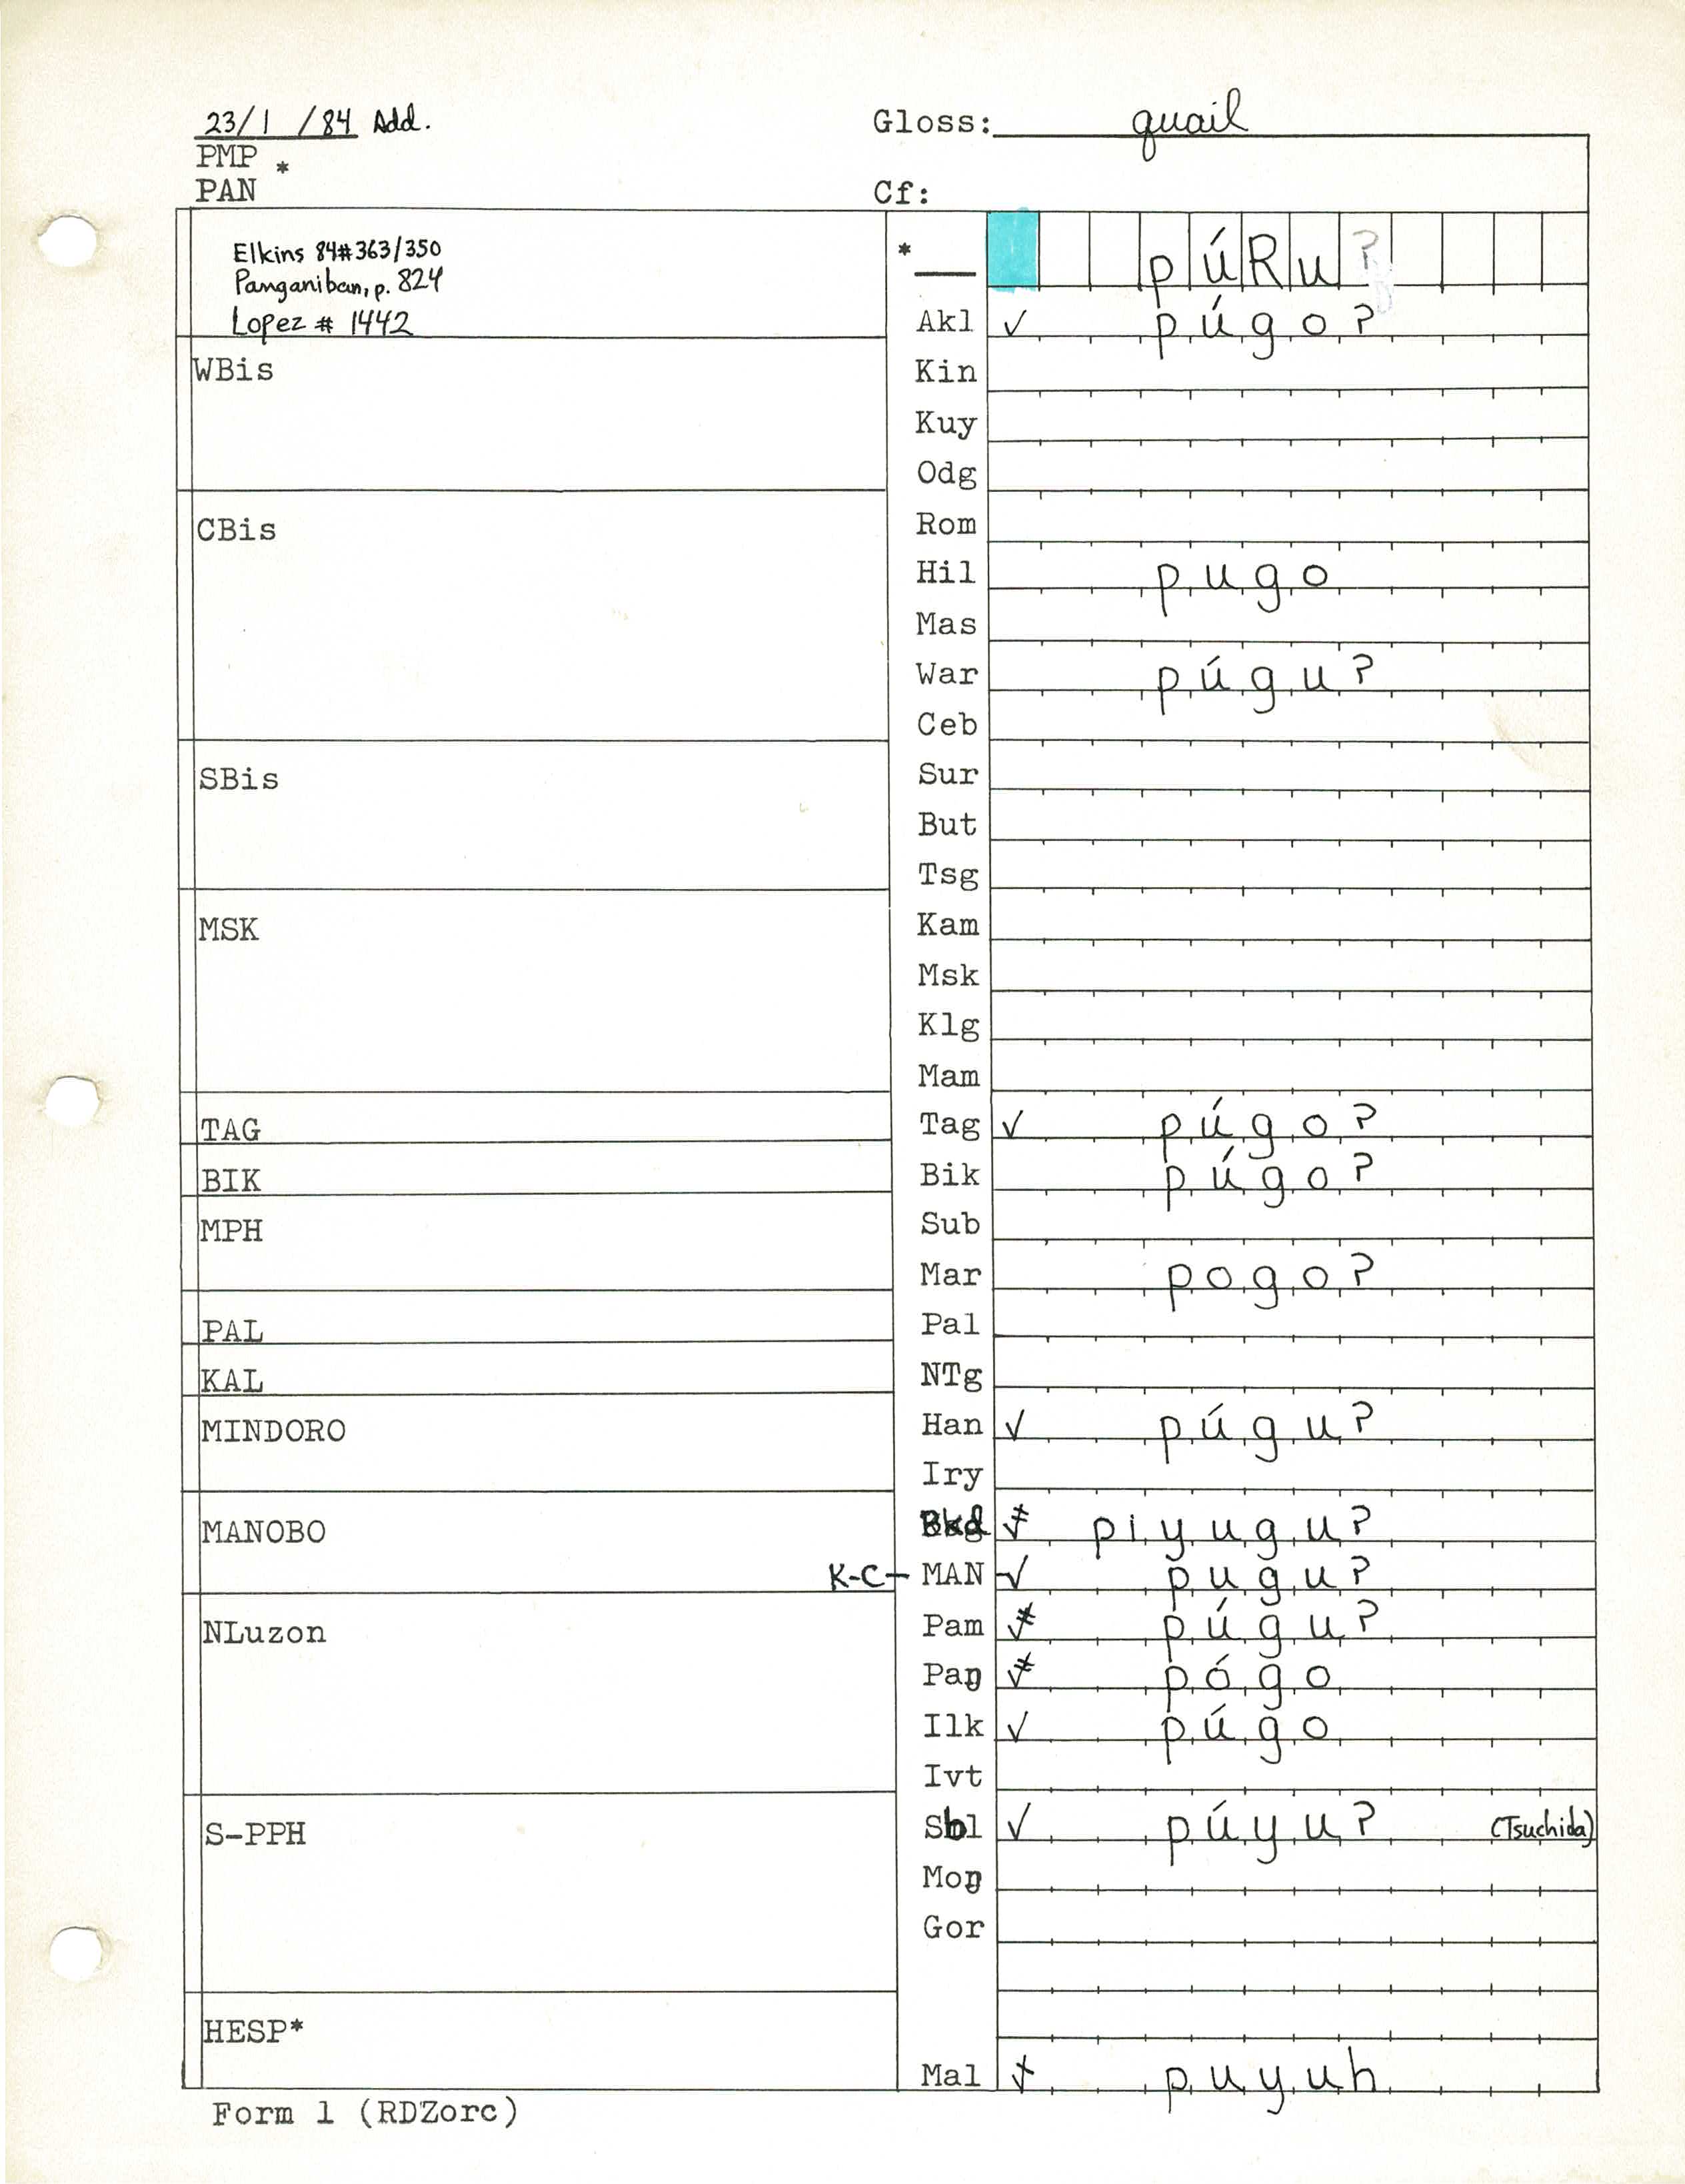 23/1/84 Add.
Gloss: quail
PMP *
PAN
Cf:
Elkins 84#363/350
Panganiban, p. 824
Lopez # 1442
* púRuʔ
Akl ✓ púgoʔ
WBis
Kin
Kuy
Odg
CBis
Rom
Hil pugo
Mas
War púguʔ
Ceb
SBis
Sur
But
Tsg
MSK
Kam
Msk
Klg
Mam
TAG
Tag ✓ púgoʔ
BIK
Bik púgoʔ
MPH
Sub
Mar pogoʔ
PAL
Pal
KAL
NTg
MINDORO
Han ✓ púguʔ
Iry
MANOBO
Bkd ✓≠ piyuguʔ
K-C- MAN ✓ puguʔ
NLuzon
Pam ✓≠ púguʔ
Paŋ ✓≠ pógo
Ilk ✓ púgo
Ivt
S-PPH
Sbl ✓ púyuʔ (Tsuchida)
Moŋ
Gor
HESP*
Mal ✓ puyuh
Form 1 (RDZorc)